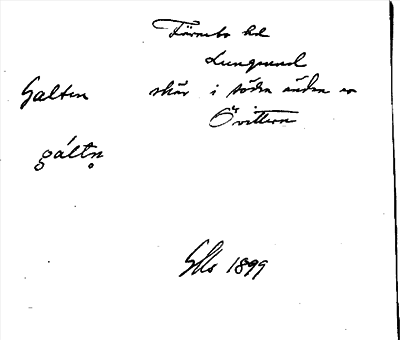 Färnebo hd
Lungsund
Galten skär i södra änden av
Övittern
gáltn̥
1899